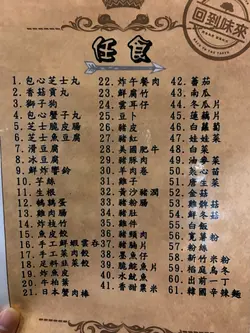 回到味來
任食
1. 包心芝士丸
2. 香菇貢丸
3. 獅子狗
4. 包心蟹子丸
5. 芝士脆皮腸
6. 芝士魚豆腐
7. 滑豆腐
8. 冰豆腐
9. 鮮炸響鈴
10. 芋絲
11. 生根
12. 鵪鶉蛋
13. 雞肉腸
14. 炸枝竹
15. 魚卜
16. 手工鮮蝦雲吞
17. 手工菜肉餃
18. 足料韮菜餃
19. 炸魚皮
20. 牛柏葉
21. 日本蟹肉棒
22. 炸午餐肉
23. 鮮腐竹
24. 雲耳仔
25. 豆卜
26. 豬皮
27. 豬紅
28. 美國肥牛
29. 豬頸肉
30. 羊肉卷
31. 雞子
32. 黃沙豬潤
33. 豬粉腸
34. 豬肚
35. 雞件
36. 豬頸肉
37. 豬腩片
38. 墨魚仔
39. 脆鯇魚片
40. 水魷魚
41. 香甜粟米
42. 蕃茄
43. 南瓜
44. 冬瓜片
45. 蓮藕片
46. 白蘿蔔
47. 娃娃菜
48. 白菜
49. 油麥菜
50. 夾心苗
51. 唐生菜
52. 金菇
53. 雞髀菇
54. 鮮冬菇
55. 白飯
56. 寬薯粉
57. 粉絲
58. 新竹米粉
59. 稻庭烏冬
60. 出前一丁
61. 韓國辛辣麵